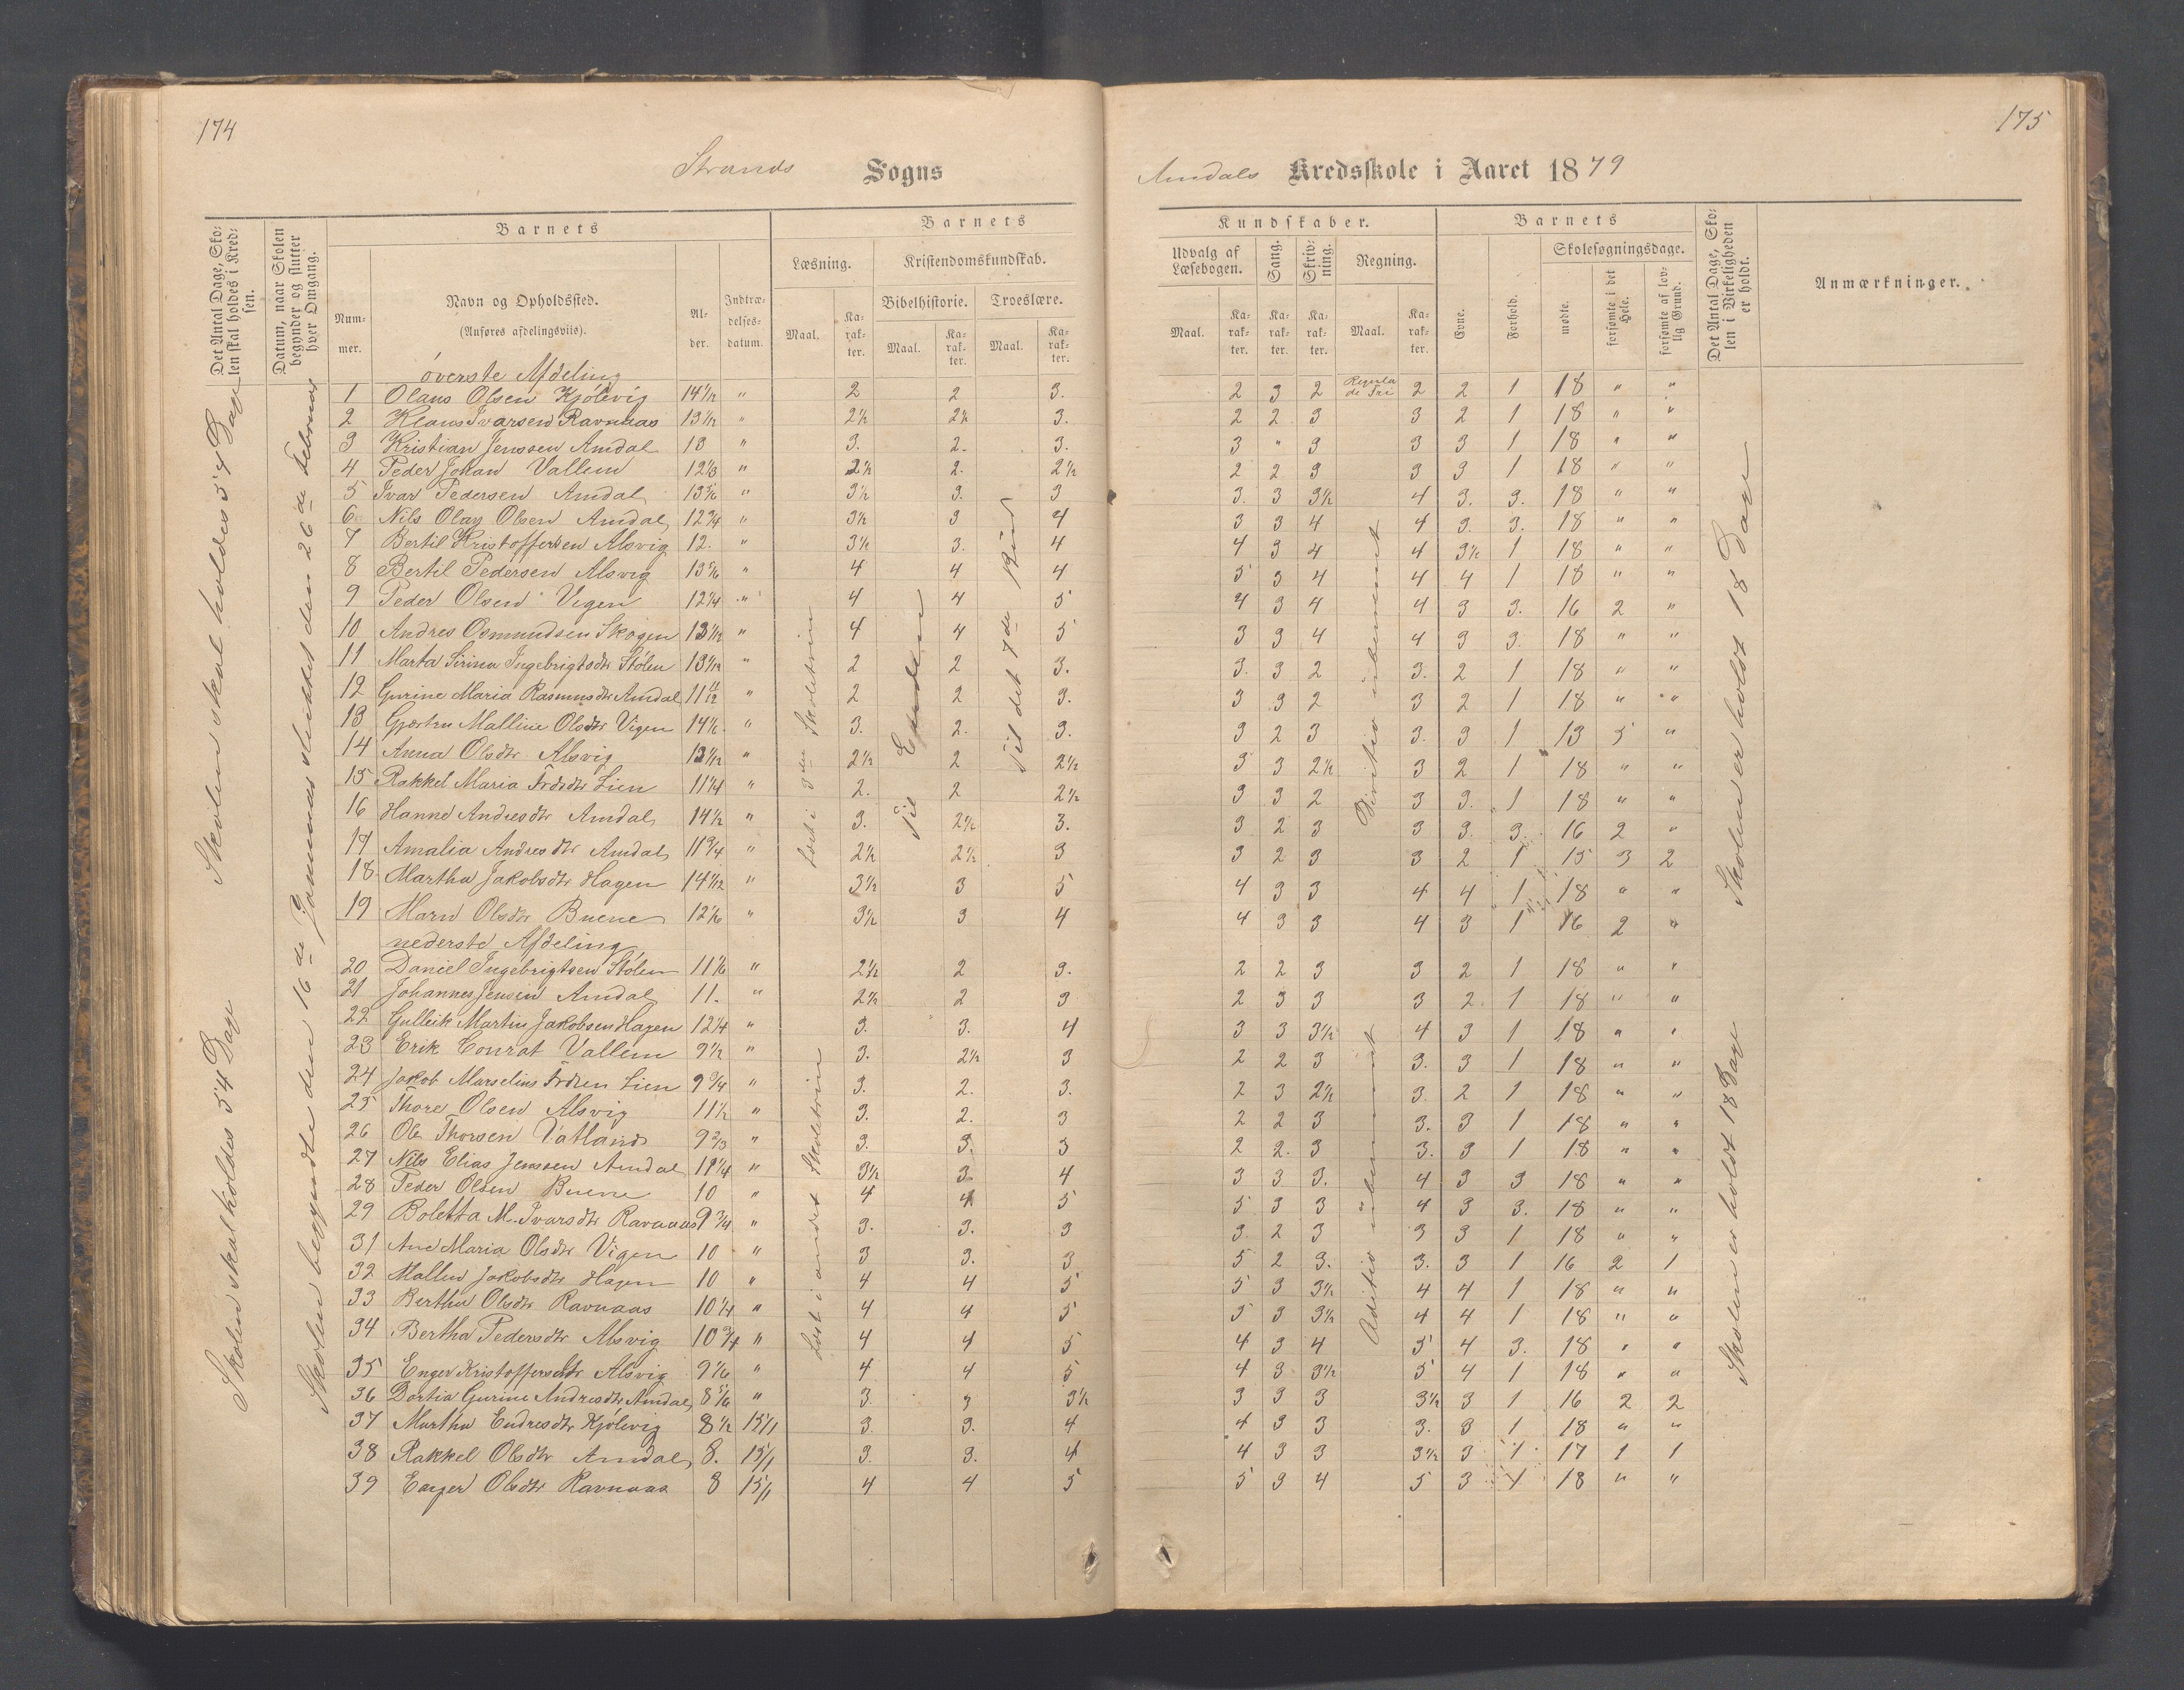 174
175
Strands Sogns
Amdals Kredsskole i Aaret 1879
Det Antal Dage, Skolen skal holdes i Kredsen.
Datum, naar Skolen begynder og slutter hver Omgang.
Barnets
Barnets
Kundskaber.
Barnets
Det Antal Dage, Skolen i Virkeligheden er holdt.
Anmærkninger.
Nummer.
Navn og Opholdssted.
(Anføres afdelingsviis).
Alder.
Indtrædelsesdatum.
Læsning.
Kristendomskundskab.
Bibelhistorie.
Troeslære.
Udvalg af Læsebogen.
Sang.
Skrivning.
Regning.
Evne.
Forhold.
Skolesøgningsdage.
mødte.
forsømte i det Hele.
forsømte af lovlig Grund.
Maal. Karakter. Maal. Karakter. Maal. Karakter.
Maal. Karakter. Karakter. Karakter. Maal. Karakter.
Skolen skal holdes 54 Dage
Skolen skal holdes 54 Dage
Skolen begyndte den 16de Januar sluttet den 26de Februar
Læst i 3die Skoletrin
Til Enden
Til det 7de Bud
Divitio ubenævnt
Læst i andet Skoletrin
Skolen er holdt 18 Dage
Skolen er holdt 18 Dage
øverste Afdeling
1 Olaus Olsen Kjölevig 14 1/12 " 2 2 3. 2 3 2 Regula de Tri 2 2 1 18 " "
2 Klaus Ivarsen Ravnaas 13 1/12 " 2 1/2 2 1/2 3. 2 2 3 3 2 1 18 " "
3 Kristian Jenssen Amdal 13 " 3. 2. 3. 3 " 3 3 3 1 18 " "
4 Peder Johan Vallem 12 1/3 " 2 1/2 2. 2 1/2 2 2 3 3 3 1 18 " "
5 Ivar Pedersen Amdal 13 5/6 " 3 1/2 3. 3 3. 3 3 1/2 4 3. 3. 18 " "
6 Nils Olay Olsen Amdal 12 3/4 " 3 1/2 3 4 3 3 4 4 3. 3. 18 " "
7 Bertil Kristoffersen Alsvig 12. " 3 1/2 3. 4 4 3 4 4 3 1/2 1 18 " "
8 Bertil Pedersen Alsvig 13 5/6 " 4 4 4 5 3 4 4 4 1 18 " "
9 Peder Olsen Vigen 12 1/4 " 4 4 5 4 3 4 4 3 3. 16 2 "
10 Andres Osmundsen Skogen 13 1/12 " 4 4 5 3 3 4 4 3 3. 18 " "
11 Marta Sirina Ingebrigtsdtr Stölen 13 1/12 " 2 2 3. 3. 3 2 3. 2 1 18 " "
12 Gurine Maria Rasmusdtr Amdal 11 11/12 " 2 2 3. 3 3 2 3 2 1 18 " "
13 Gjertru Malline Olsdtr Vigen 14 1/6 " 3. 2. 3. 3 2 3 3. 3 1 13 5 "
14 Anna Olsdtr Alsvig 13 1/12 " 2 1/2 2 2 1/2 3 3 2 1/2 3 2 1 18 " "
15 Rakkel Maria Frdsdtr Lien 11 1/4 " 2. 2 2 1/2 3 3 2 3 3. 1 18 " "
16 Hanne Andresdtr Amdal 14 1/2 " 3. 2 1/2 3. 3 2 3 3 3. 3. 16 2 "
17 Amalia Andresdtr Amdal 11 3/4 " 2 1/2 2 1/2 3 3 2 3 3 2 1 15 3 2
18 Martha Jakobsdtr Hagen 14 1/12 " 3 1/2 3 5 4 3 3 4 4 1 18 " "
19 Maru Olsdtr Buene 12 1/6 " 3 1/2 3 4 4 3 3 4 3 1 16 2 "
nederste Afdeling
20 Daniel Ingebrigtsen Stölen 11 1/6 " 2 1/2 2 3. 2 2 3 3 2 1 18 " "
21 Johannes Jensen Amdal 11. " 2 1/2 2 3 2 3 3 3 2. 1 18 " "
22 Gulleik Martin Jakobsen Hagen 12 1/4 " 3. 3. 4 3 3 3 1/2 4 3 1 18 " "
23 Erik Conrat Vallem 9 1/2 " 3. 2 1/2 3 2 2 3 3. 3 1 18 " "
24 Jakob Marselius Frdsen Lien 9 3/4 " 3. 2. 3. 2 3 2 1/2 3. 2 1 18 " "
25 Thore Olsen Alsvig 11 1/2 " 3. 2. 3 2 2 3 3. 3 1 18 " "
26 Ole Thorsen Vatland 9 2/3 " 3. 3. 3 2 2. 3 3. 3 1 18 " "
27 Nils Elias Jenssen Amdal 11 1/4 " 3 1/2 3. 4 3 3 3. 4 3 3 18 " "
28 Peder Olsen Buene 10 " 4 4 5 5 3 3 4 3 3. 18 " "
29 Boletta M. Ivarsdtr Ravnaas 9 3/4 " 3. 3. 3 3 2 3 3 3 1 18 " "
31 Ane Maria Olsdtr Vigen 10 " 3 3. 3 5 2 3. 3. 3 1 16 2 1
32 Mallen Jakobsdtr Hagen 10 " 4 4 5 5 3 3 1/2 4 4 1 18 " "
33 Bertha Olsdtr Ravnaas 10 1/4 " 4 4 5 5 3 3 1/2 4 4 1 18 " "
34 Bertha Pedersdtr Alsvig 10 3/4 " 4 4 5 4 3 4 5 4 3. 18 " "
35 Enger Kristoffersdtr Alsvig 9 1/6 " 4 4 5 4 3 3 1/2 5 4 1 18 " "
36 Dortia Gurine Andresdtr Amdal 8 5/6 " 3. 3 3 1/2 3 3 3 3 1/2 3 1 16 2 2
37 Martha Endresdtr Kjölevig 8 1/2 15/1 3. 3. 4 4 3 3 3. 3 1 18 " "
38 Rakkel Olsdtr Amdal 8. 15/1 3. 3. 4 4 3 3 3 1/2 3 1 17 1 1
39 Enger Olsdtr Ravnaas 8 15/1 4 4 5 5 3 4 5 3 1 18 " "